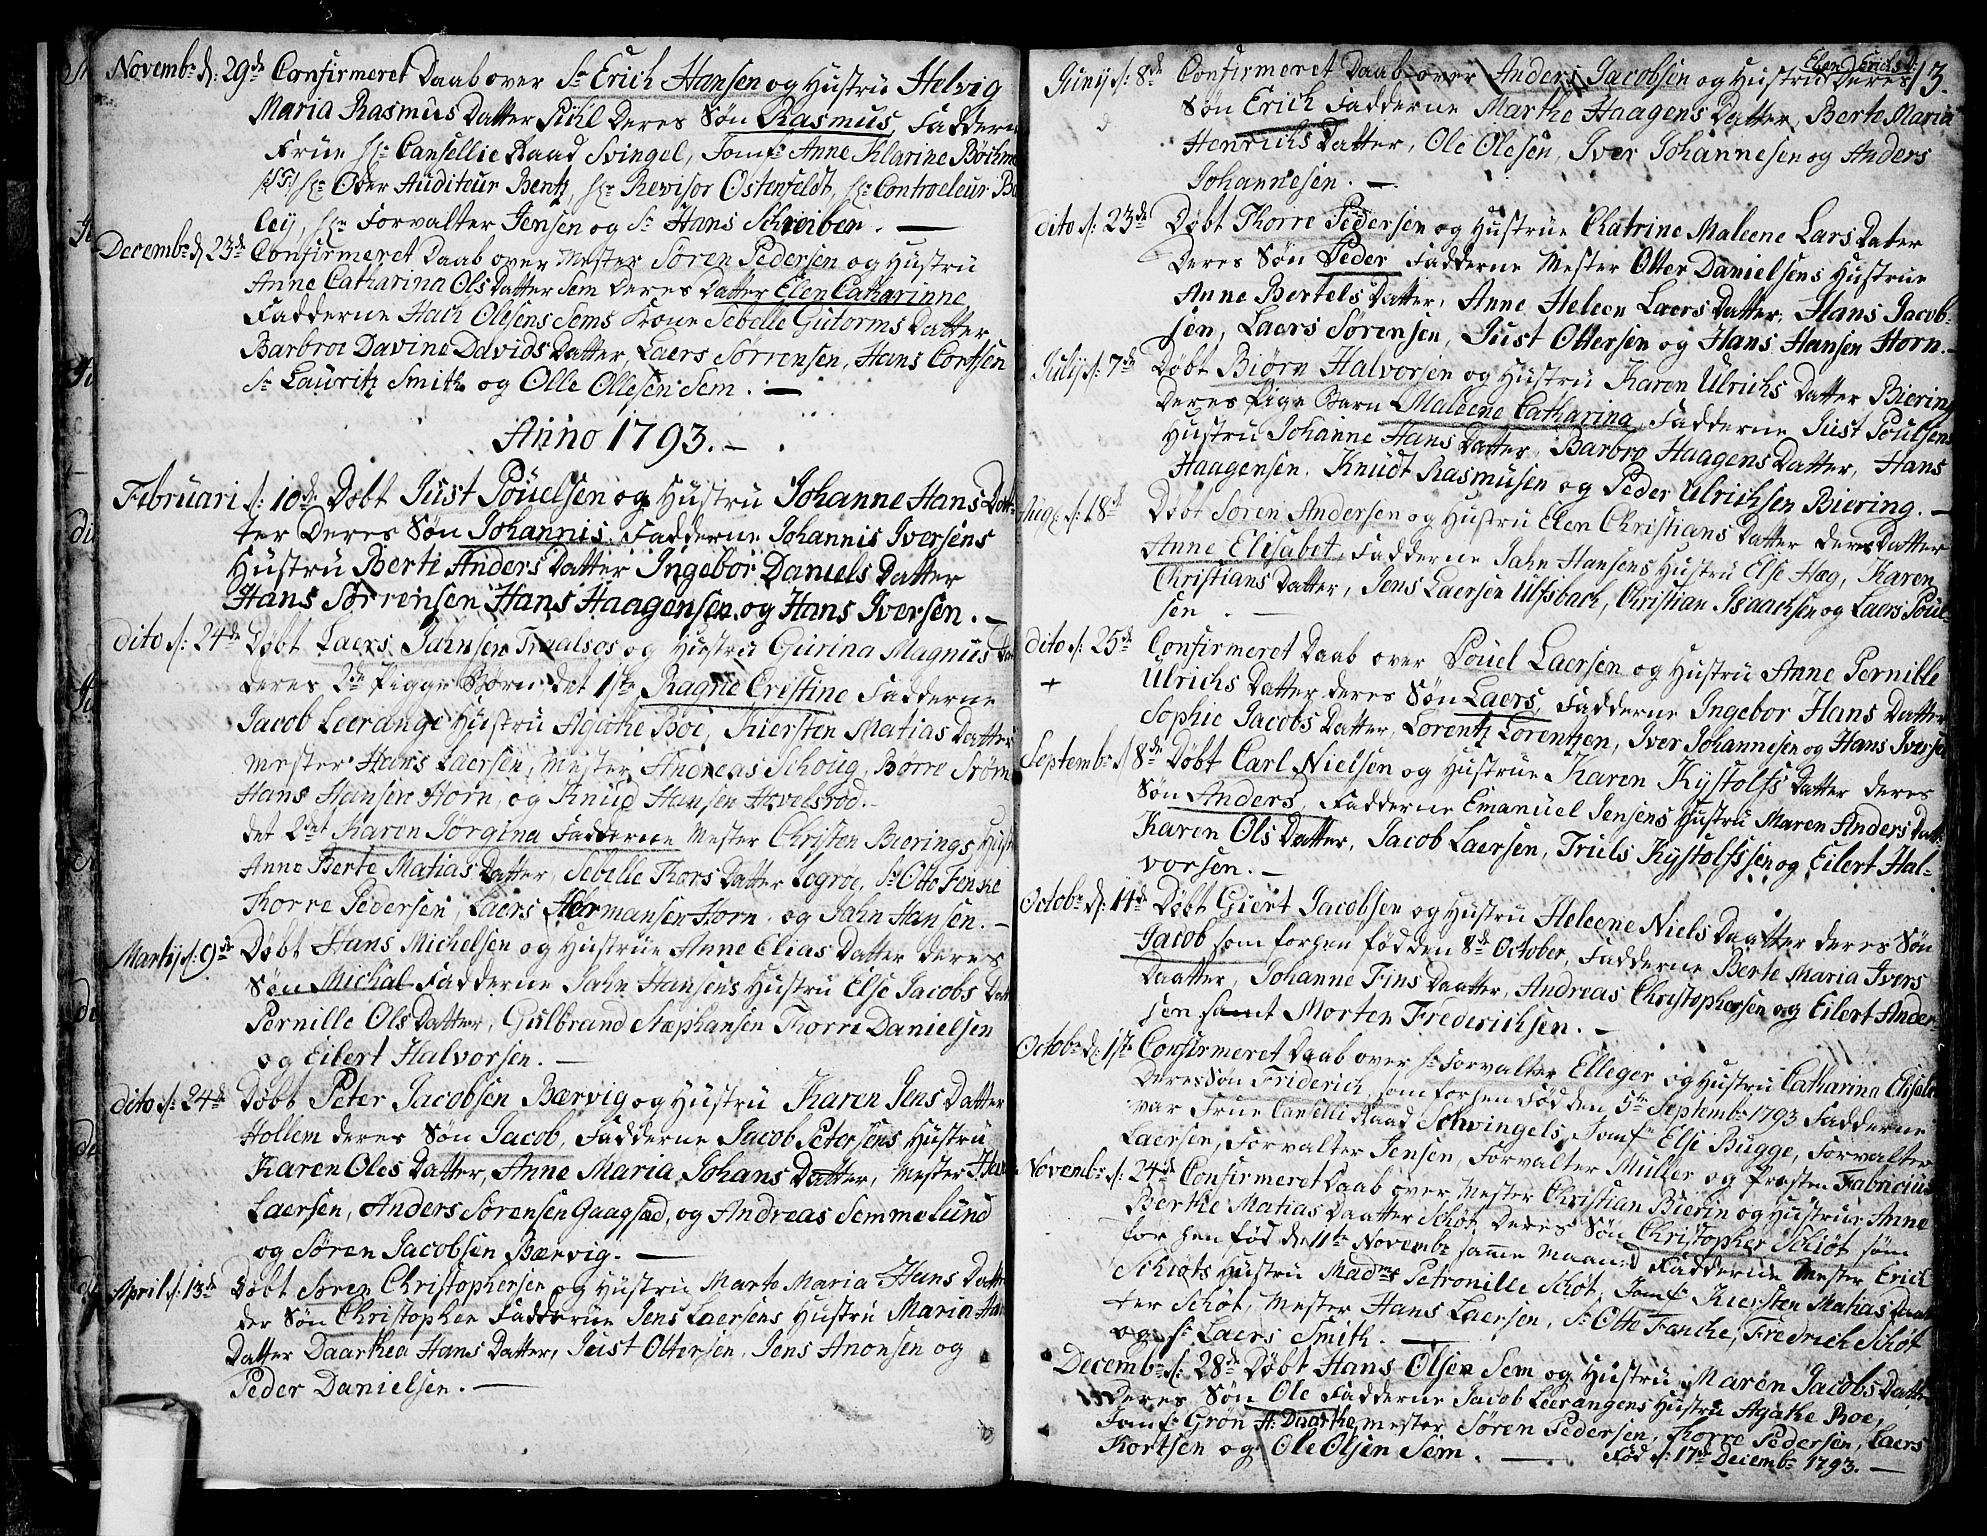 Novemb: d: 29de Confirmeret Daab over Sr Erich Hansen og Hustru Helvig
Maria Rasmus Datter Pihl Deres Søn Rasmus, Faddern
Frue Hr: Cansellie Raad Svingel, Jomf: Anne Klarine Böckm
Hr: Over Auditeur Bentz, Hr: Revisor Ostenfeldt, Hr: Controeleur Be
ley, Hr: Forvalter Jensen og Sr Hans Schreiben. —
Decemb: d 23de Confirmeret Daab over Mester Sören Pedersen og Hustru
Anne Catharina Ols Datter Sem Deres Datter Elen Catharinne
Fadderne Hach Olesens Sems Kone Sebelle Gutorms Datter,
Barbroe Davine Davids Datter, Laers Sörrensen, Hans Cortsen
Sr Lauritz Smith og Olle Ollesen Sem. —
Anno 1793. —
Februari d: 10de Döbt Just Pouelsen og Hustru Johanne Hans Dat-
ter Deres Søn Johannis, Fadderne Johannis Iversens
Hustru Berte Anders Datter Ingebor Daniels Datter
Hans Sörrensen Hans Haagensen og Hans Iversen. —
dito d: 24de Döbt Laers Jahnsen Traalsos og Hustru Gurina Magnus Da
deres 2de Pigge Børn, det 1ste Ragne Cristine Fadderne
Jacob Leerange Hustru Agathe Boe, Kiersten Matias Datter
Mester Hans Laersen, Mester Andreas Schoug, Börre Tröm
Hans Hansen Horn, og Knud Hansen Hovelsrød.
det 2det Karen Jörgina Fadderne Mester Christen Bierings Hust
Anne Berte Matias Datter, Sebelle Thors Datter Logroe, Sr Otto Fenke
Thorre Pedersen, Laers Hermansen Horn, og Jahn Hansen. —
Martij d: 9de Döbt Hans Michelsen og Hustrue Anne Elias Datter Deres
Søn Michal Fadderne Jahn Hansens Hustru Else Jacobs Datt
Pernille Ols Datter, Gulbrand Stæphansen Thorre Danielsen
og Eilert Halvorsen. —
dito d: 24de Döbt Peter Jacobsen Bærvig og Hustru Karen Jens Datter
Hollem deres Søn Jacob, Fadderne Jacob Petersens Hustru
Karen Oles Datter, Anne Maria Johans Datter, Mester Han
Laersen, Anders Sörensen Gaagsad, og Andreas Semmelund
og Sören Jacobsen Bærvig. —
April d: 13de Döbt Sören Christophersen og Hustru Marte Maria Hans Datte
der Søn Christopher Fadderne Jens Laersens Hustru Maria Han
Datter Daarthea Hans Datter, Just Ottersen, Jens Anonsen og
Peder Danielsen. —
Elen Erichs D: 13.
Junij d: 8de Confirmeret Daab over Anders Jacobsen og Hustru Deres
Søn Erich Fadderne Marthe Haagens Datter, Berte Maria
Henrichs Datter, Ole Olesen, Iver Johannesen og Anders
Johannesen. —
dito d: 23de Döbt Thorre Pedersen og Hustrue Chatrine Maleene Lars Dater
Deres Søn Peder Fadderne Mester Otter Danielsens Hustrue
Anne Bertels Datter, Anne Heleen Laers Datter, Hans Jacob-
sen, Laers Sörensen, Just Ottersen og Hans Hansen Horn. —
Julij d: 7de Döbt Biörn Halvorsen og Hustru Karen Ulrichs Datter Biering
Deres Pige Barn Maleene Catharina, Fadderne Just Poulsens
Hustru Johanne Hans Datter, Barbro Haagens Datter, Hans
Haagensen, Knudt Rasmusen og Peder Ulrichsen Biering. —
Aug: d: 18de Döbt Sören Andersen og Hustru Elen Christians Datter deres Datter
Anne Elisabet, Fadderne Jahn Hansens Hustru Else Hæg, Karen
Christians Datter, Jens Laersen Ulfsbach, Christian Isaachsen og Laers Poue-
sen. —
dito d: 25de Confirmeret Daab over Pouel Laersen og Hustru Anne Pernille
+ Ulrichs Datter deres Søn Laers, Fadderne Ingebor Hans Datter
Sophie Jacobs Datter, Lorentz Lorentzen, Iver Johannesen og Hans Iversen
Septemb: d 8de Döbt Carl Nielsen og Hustrue Karen Kystolfs Datter deres
Søn Anders, Fadderne Emanuel Jensens Hustru Maren Anders Datt:
Karen Ols Datter, Jacob Laersen, Truls Kystolfssen og Eilert Hal-
vorsen. —
Octob: d: 14de Döbt Giert Jacobsen og Hustru Heleene Niels Daatter deres Søn
Jacob som forhen fød den 8de October, Fadderne Berte Maria Ivers
Daatter, Johanne Fins Daatter, Andreas Christophersen og Eilert Ander-
sen samt Morten Frederichsen. —
Octob: d: 1ste Confirmeret Daab over Hr Forvalter Elleger og Hustru Catharina Elisabe
Deres Søn Friderich, som forhen Fød den 5te Septemb: 1793 Fadderne
var Frue Canselli Raad Schwingels, Jomf: Else Bugge, Forvalter
Laersen, Forvalter Jensen, Forvalter Müller og Prosten Fabricius
Novemb: d: 24de Confirmeret Daab over Mester Christian Bierin og Hustrue Anne
Berthe Matias Daatter Schöt, Deres Søn Christopher Schiöt som
forhen fød den 11te Novemb: samme Maaned Fadderne Mester Erich
Schiöts Hustru Madme Petronille Schöt, Jomf: Kiersten Matias Daat
ter Schöt, Mester Hans Laersen, Sr Otte Fancke, Fredrich Schöt
og Sr Laers Smith. —
Decemb: d: 28de Döbt Hans Olsen Sem og Hustru Maren Jacobs Datter
Deres Søn Ole Fadderne Jacob Leerangens Hustru Agathe Boe,
Jomf: Grön A: Daarthe, Mester Sören Pedersen, Thorre Pedersen, Laers
Kortsen og Ole Olsen Sem. — Fød d: 17de Decemb: 1793. —